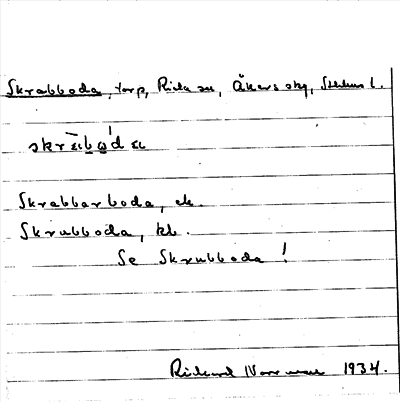 Skrabboda, torp, Riala sn, Åkers skg, Sthlms l.
Skrabbarboda, ek.
Skrubboda, kb.
Se Skrubboda!
Rickard Norrman 1934.